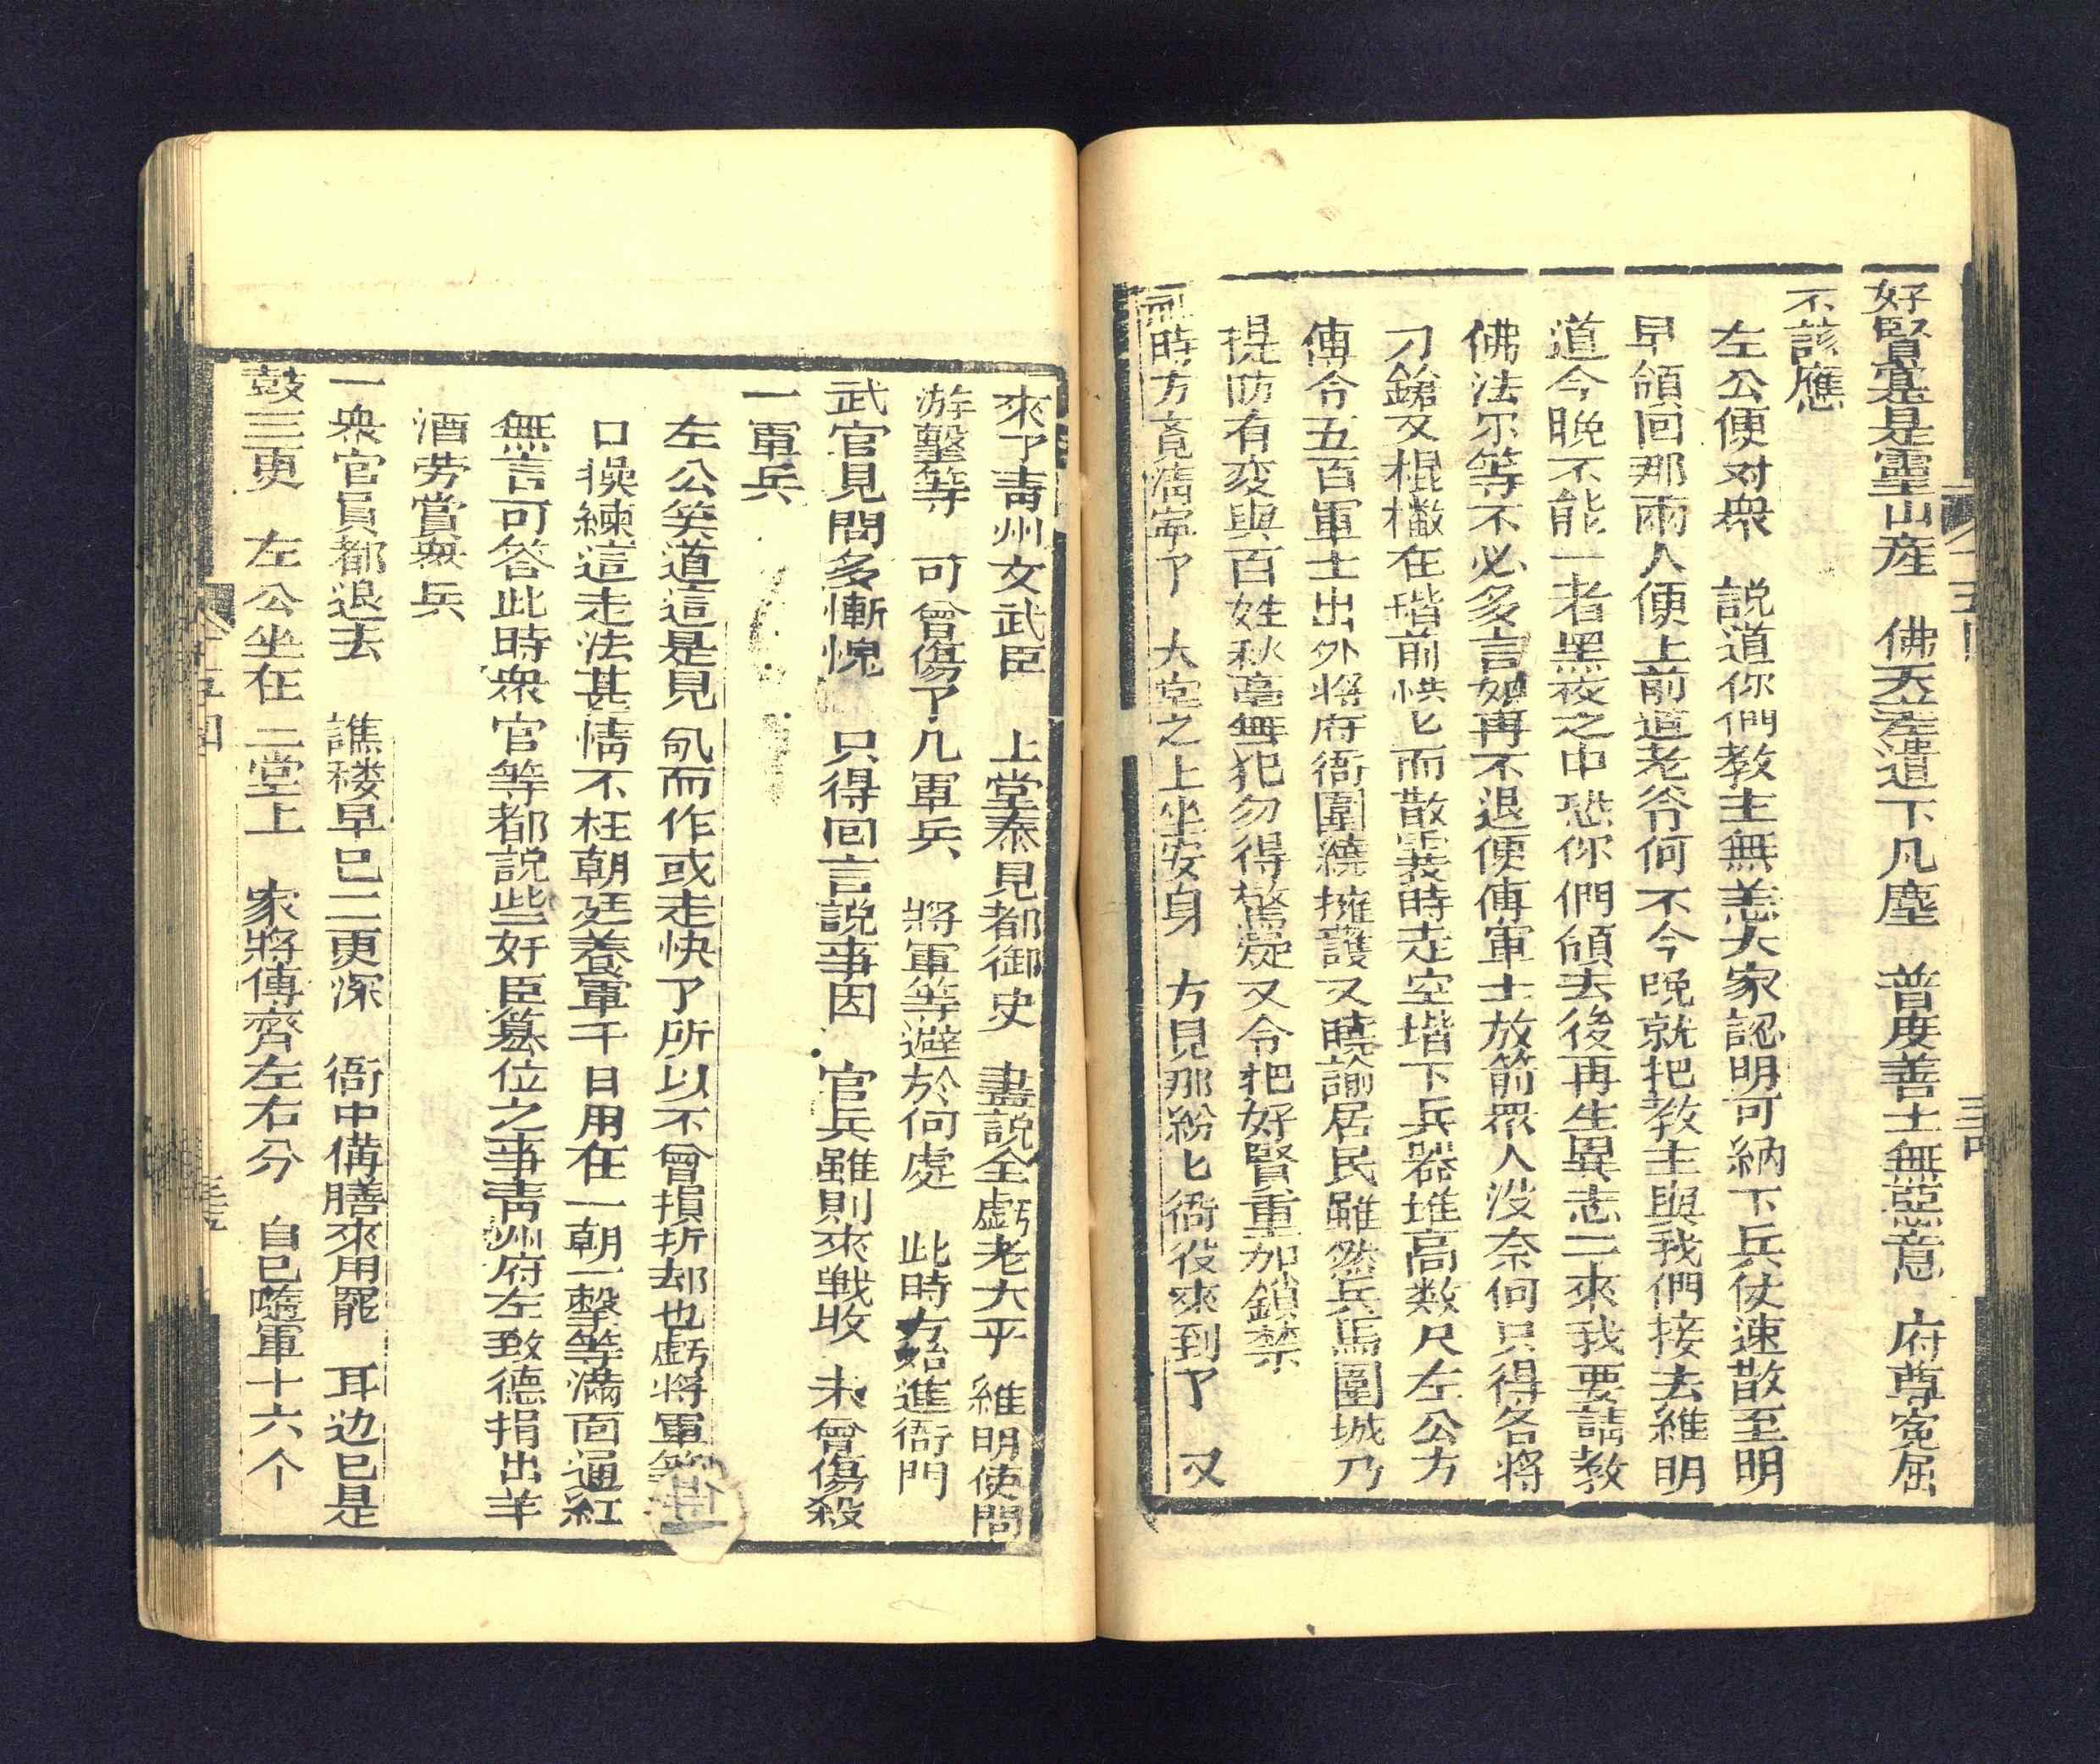 好賢實是靈山産　佛天差遣下凡塵　普度善士無惡意　府尊寃屈
不該應
左公便对衆　説道你們教主無恙大家認明可納下兵仗速散至明
早領回那兩人便上前道老爷何不今晚就把教主與我們接去維明
道今晚不能一者黑夜之中恐你們領去後再生異志二來我要請教
佛法尔等不必多言如再不退便傳軍士放箭眾人没奈何只得各將
刀鎗叉棍撇在堦前烘匕而散霎時走空堦下兵器堆高数尺左公方
傳令五百軍士出外將府衙圍繞擁護又曉諭居民雖然兵馬圍城乃
提防有変與百姓秋毫無犯勿得驚疑又令把好賢重加鎖禁
時方
清寧了　大堂之上坐安身　方見那紛匕衙役來到了　又
來了青州文武臣　上堂叅見都御史　盡説全虧老大平　維明使問
游擊等　可曾傷了几軍兵　將軍等避於何處　此時方始進衙門
武官見問多慚愧　只得回言説事因　官兵雖則來戦收　未曾傷殺
一軍兵
左公笑道這是見而作或走快了所以不曾損折却也虧將軍
口操練這走法甚情不枉朝廷養軍千日用在一朝一擊等滿面通紅
無言可答此時衆官等都説些奸臣簒位之事青州府左致德捐出羊
酒劳賞衆兵
一衆官員都退去　譙楼早已二更深　衙中備膳來用罷　耳边已是
鼓三更　左公坐在二堂上　家將傳齊左右分　自己隨軍十六个